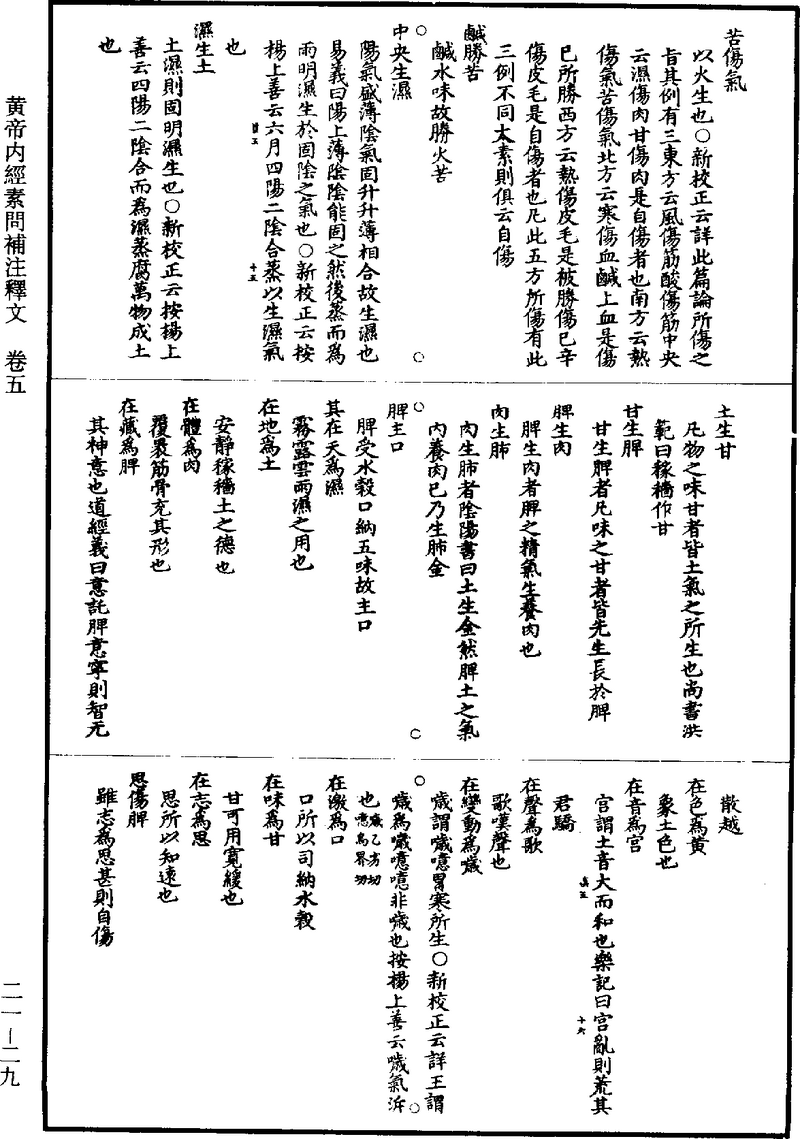 苦傷氣
以火生也○新校正云詳此篇論所傷之
旨其例有三東方云風傷筋酸傷筋中央
云濕傷肉甘傷肉是自傷者也南方云熱
傷氣苦傷氣北方云寒傷血鹹上血是傷
巳所勝西方云熱傷皮毛是被勝傷巳辛
傷皮毛是自傷者也凡此五方所傷有此
三例不同太素則俱云自傷
鹹勝苦
鹹水味故勝火苦
中央生濕
陽氣盛薄陰氣固升升薄相合故生濕也
易義曰陽上薄陰陰能固之然後蒸而為
雨明濕生於固陰之氣也○新校正云按
楊上善云六月四陽二陰合蒸以生濕氣
也
濕生土
土濕則固明濕生也○新校正云按楊上
善云四陽二陰合而為濕蒸腐萬物成土
也
土生甘
凡物之味甘者皆土氣之所生也尚書洪
範曰稼穡作甘
甘生脾
甘生脾者凡味之甘者皆先生長於脾
脾生肉
脾生肉者脾之精氣生養肉也
肉生肺
肉生肺者陰陽書曰土生金然脾土之氣
內養肉已乃生肺金
脾主口
脾受水穀口納五味故主口
其在天為濕
霧露雲雨濕之用也
在地為土
安靜稼穡土之德也
在體為肉
覆裹筋骨充其形也
在藏為脾
其神意也道經義曰意託脾意寧則智无
散越
在色為黃
象土色也
在音為宮
宮謂土音大而和也樂記曰宮亂則荒其
君驕
在聲為歌
歌嘆聲也
在變動為噦
噦謂噦噫胃寒所生○新校正云詳王謂
噦為噦噫噫非噦也按楊上善云噦氣泝
也噦乙劣切噫烏界切
在竅為口
口所以司納水穀
在味為甘
甘可用寬緩也
在志為思
思所以知遠也
思傷脾
雖志為思甚則自傷
黃帝内經素問補注釋文 卷五
二一—二九